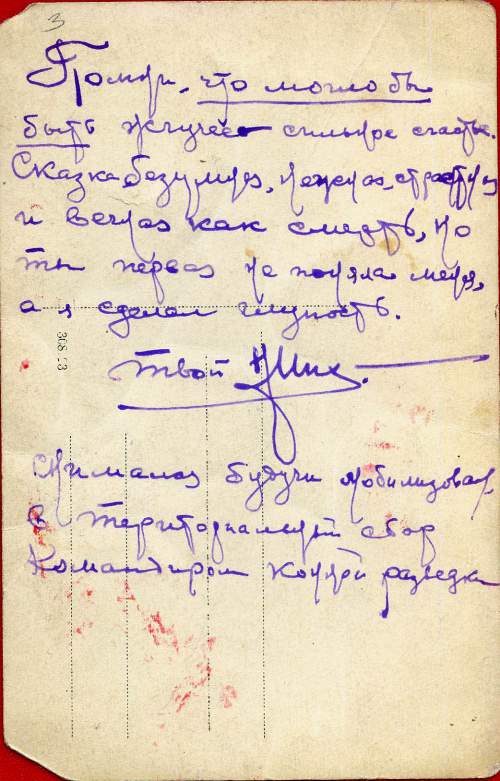 3
Помни, что могло бы
быть жгучее сильное счастье.
Сказка безумная, нежная, страстная
и вечная как смерть, но
ты первая не поняла меня,
а я сделал глупость.
Твой
Снимался будучи мобилизован
в территориальный сбор
командиром конной разведки